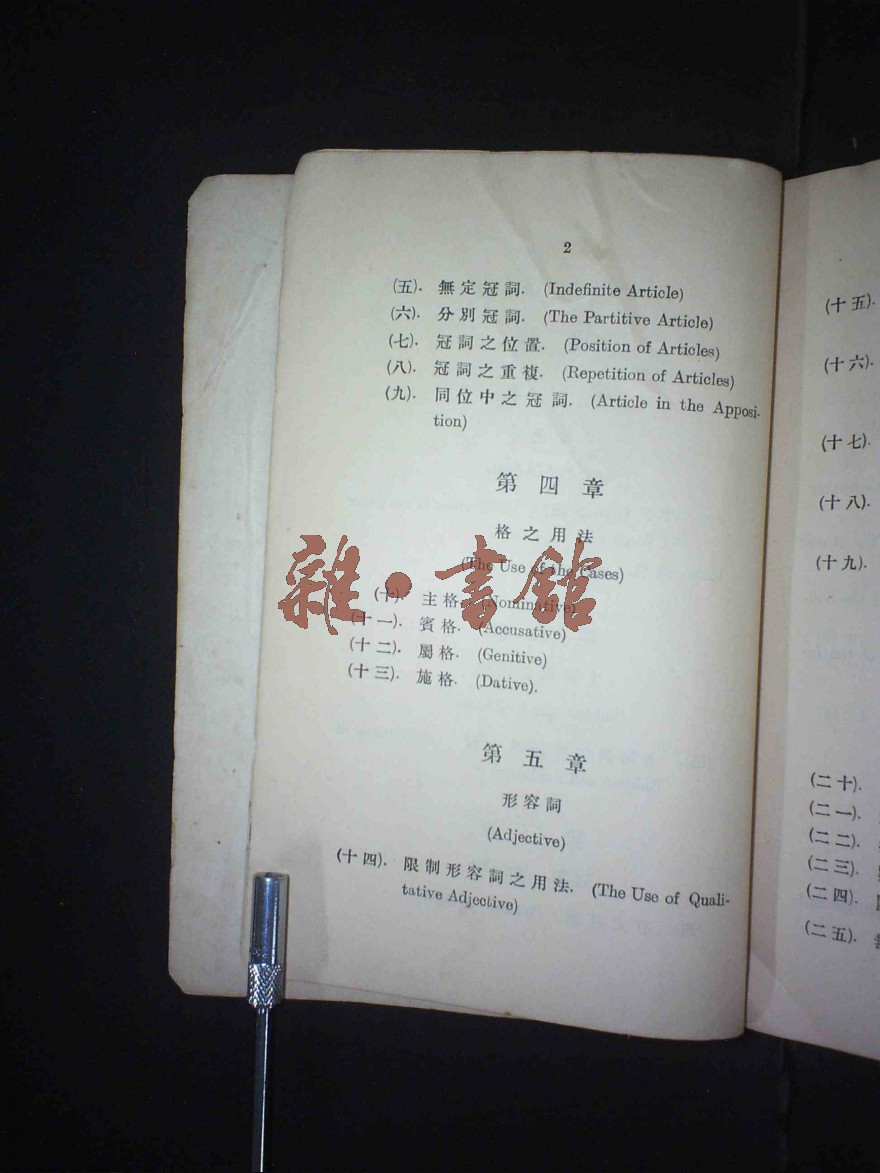 2
(五). 無定冠詞. (Indefinite Article)
(六). 分別冠詞. (The Partitive Article)
(七). 冠詞之位置. (Position of Articles)
(八). 冠詞之重複. (Repetition of Articles)
(九). 同位中之冠詞. (Article in the Apposi-
tion)
第四章
格之用法
(The Use of the Cases)
(十). 主格. (Nominative)
(十一). 賓格. (Accusative)
(十二). 屬格. (Genitive)
(十三). 施格. (Dative).
第五章
形容詞
(Adjective)
(十四). 限制形容詞之用法. (The Use of Quali-
tative Adjective)
雜·書館
(十五).
(十六).
(十七).
(十八).
(十九).
(二十).
(二一).
(二二).
(二三).
(二四).
(二五).